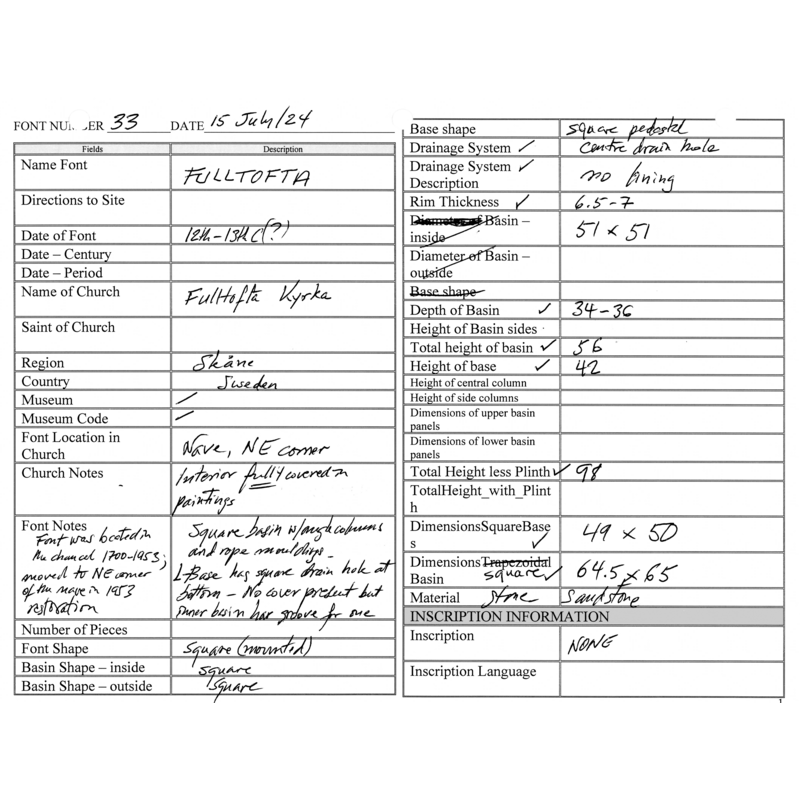 FONT NUMBER 33 DATE 15 July/24
Fields Description
Name Font FULLTOFTA
Directions to Site
Date of Font 12th-13thC(?)
Date – Century
Date – Period
Name of Church Fulltofta Kyrka
Saint of Church
Region Skåne
Country Sweden
Museum –
Museum Code –
Font Location in Church Nave, NE corner
Church Notes Interior fully covered in
paintings
Font Notes
Font was located in
the chancel 1700-1953;
moved to NE corner
of the nave in 1953
restoration
Square basin w/angle columns
and rope mouldings -
Base has square drain hole at
bottom – No cover present but
inner basin has groove for one
Number of Pieces
Font Shape Square (mounted)
Basin Shape – inside square
Basin Shape – outside square
Base shape square pedestal
Drainage System ✓ centre drain hole
Drainage System ✓
Description no lining
Rim Thickness ✓ 6.5-7
Diameter of Basin –
inside 51 x 51
Diameter of Basin –
outside
Base shape
Depth of Basin ✓ 34-36
Height of Basin sides
Total height of basin ✓ 56
Height of base ✓ 42
Height of central column
Height of side columns
Dimensions of upper basin
panels
Dimensions of lower basin
panels
Total Height less Plinth ✓ 98
TotalHeight_with_Plint
h
DimensionsSquareBase
s ✓ 49 x 50
DimensionsTrapezoidal
Basin square ✓ 64.5 x 65
Material stone Sandstone
INSCRIPTION INFORMATION
Inscription NONE
Inscription Language
1